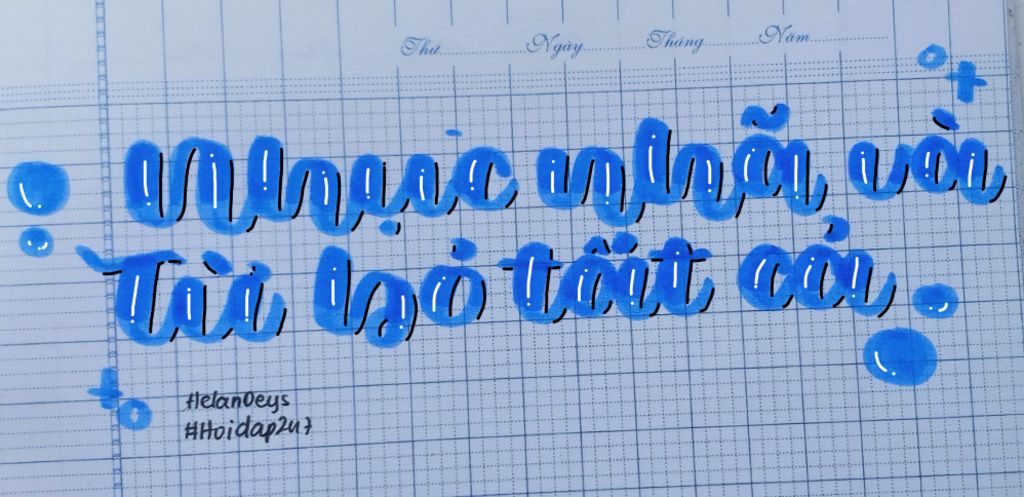 Thứ Ngày Tháng Năm
Nhục nhã và
Từ bỏ tất cả
HelanDeys
#Hoidap247